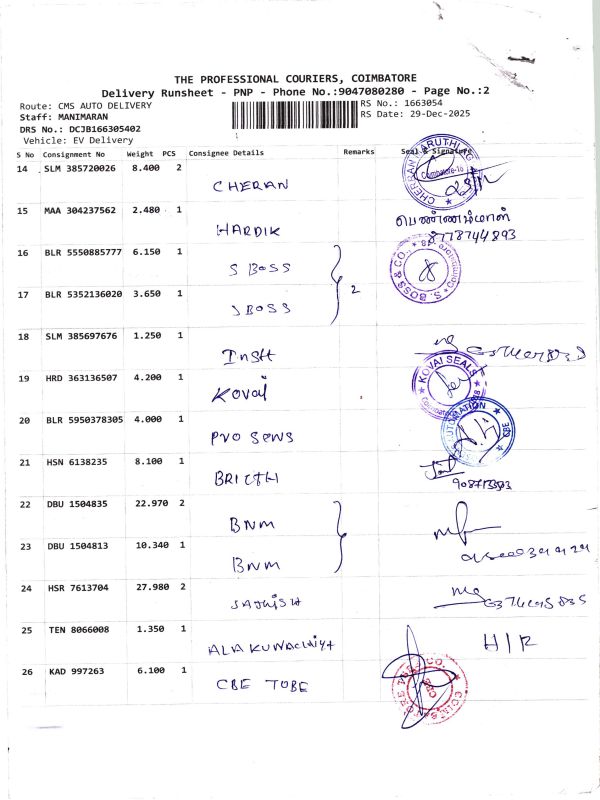 THE PROFESSIONAL COURIERS, COIMBATORE
Delivery Runsheet - PNP - Phone No.:9047080280 - Page No.:2
Route: CMS AUTO DELIVERY
RS No.: 1663054
Staff: MANIMARAN
RS Date: 29-Dec-2025
DRS No.: DCJB166305402
Vehicle: EV Delivery
S No Consignment No Weight PCS Consignee Details Remarks Seal & Signature
14 SLM 385720026 8.400 2 CHERAN
15 MAA 304237562 2.480 1 HARDIK
8778744893
16 BLR 5550885777 6.150 1 S BOSS
S. BOSS & CO.
2
17 BLR 5352136020 3.650 1 S BOSS
18 SLM 385697676 1.250 1 INSH
19 HRD 363136507 4.200 1 KOVAI
KOVAI SEALS
20 BLR 5950378305 4.000 1 PRO SENS
21 HSN 6138235 8.100 1
22 DBU 1504835 22.970 2 BNM
23 DBU 1504813 10.340 1 BNM
24 HSR 7613704 27.980 2 SATHISH
25 TEN 8066008 1.350 1 H/R
26 KAD 997263 6.100 1 CBE TUBE